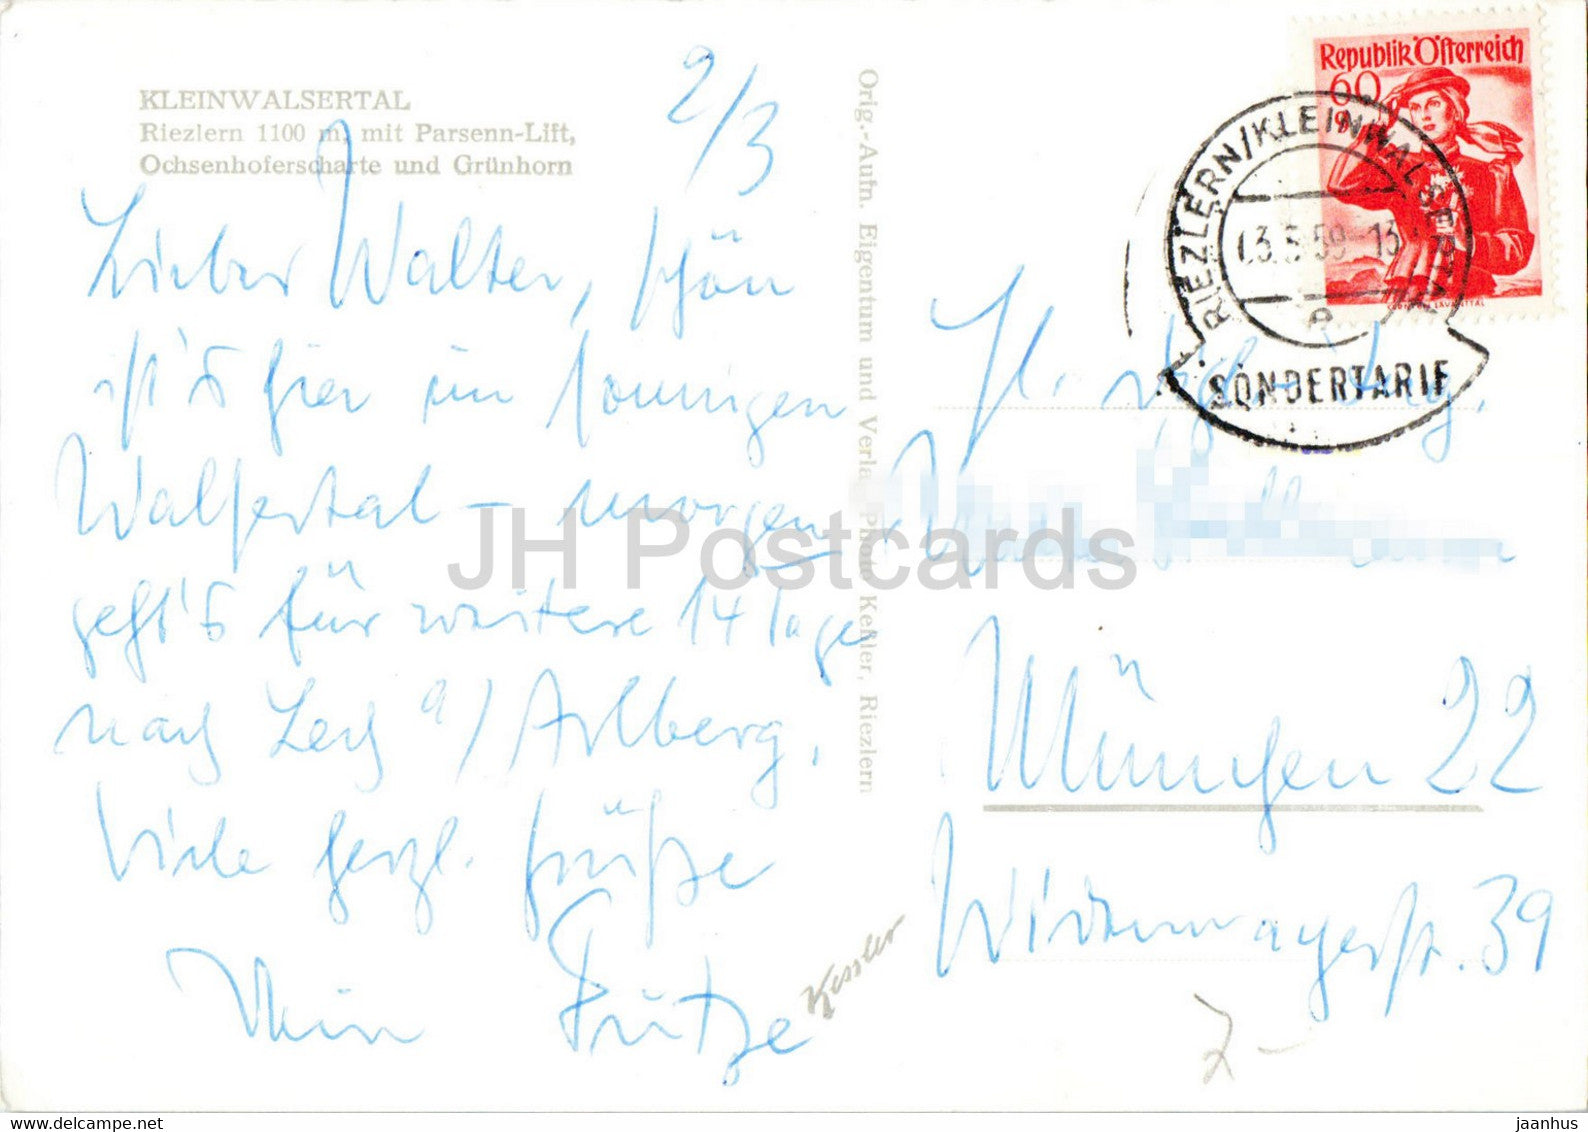 KLEINWALSERTAL
Riezlern 1100 m, mit Parsenn-Lift,
Ochsenhoferscharte und Grünhorn
2/3
Lieber Walter, schön
ist's hier im sonnigen
Walsertal - morgen
geht's für weitere 14 Tage
nach Lech a/Arlberg.
Viele herzl. Grüße
Dein
Orig.-Aufn. Eigentum und Verlag Photo Keßler, Riezlern
Kessler
Republik Österreich
60 g
RIEZLERN/KLEINWALSERTAL
SONDERTARIF
München 22
Widenmayerstr. 39
JH Postcards
jaanhus